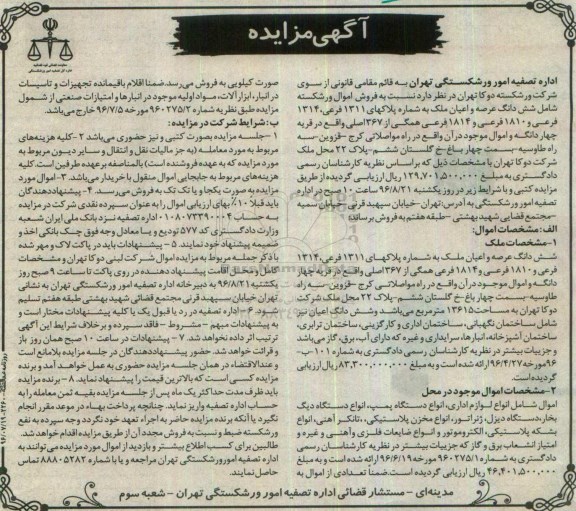 آگهی مزایده
اداره تصفیه امور ورشکستگی تهران به قائم مقامی قانونی از سوی
شرکت ورشکسته دوکا تهران در نظر دارد نسبت به فروش اموال ورشکسته
شامل شش دانگ عرصه و اعیان ملک به شماره پلاکهای ۱۳۱۱ فرعی،۱۳۱۴
فرعی و ۱۸۱۰ فرعی و ۱۸۱۴ فرعی همگی از ۳۶۷ اصلی واقع در قریه
چهار دانگه و اموال موجود در آن واقع در راه مواصلاتی کرج -قزوین-سه
راه طاوسیه -بسمت چهار باغ-خ گلستان ششم-پلاک ۲۲ محل ملک
شرکت دوکا تهران با مشخصات ذیل که براساس نظریه کارشناسان رسمی
دادگستری به مبلغ ۱۲۹,۷۰۱,۵۰۰,۰۰۰ ریال ارزیابی گردیده از طریق
مزایده کتبی و با شرایط زیر در روز یکشنبه ۹۶/۸/۲۱ ساعت ۱۰ صبح در اداره
تصفیه امور ورشکستگی به آدرس: تهران-خیابان سپهبد قرنی-خیابان سمیه
-مجتمع قضایی شهید بهشتی -طبقه هفتم به فروش برساند:
الف: مشخصات اموال:
۱-مشخصات ملک
شش دانگ عرصه و اعیان ملک به شماره پلاکهای ۱۳۱۱ فرعی،۱۳۱۴
فرعی و ۱۸۱۰ فرعی و ۱۸۱۴ فرعی همگی از ۳۶۷ اصلی واقع در قریه چهار
دانگه و اموال موجود در آن واقع در راه مواصلاتی کرج -قزوین-سه راه
طاوسیه -بسمت چهار باغ-خ گلستان ششم-پلاک ۲۲ محل ملک شرکت
دوکا تهران به مساحت ۱۳۶۱۵ مترمربع می‌باشد و شش دانگ اعیان نیز
شامل ساختمان نگهبانی، ساختمان اداری و کارگزینی، ساختمان ترابری،
ساختمان آشپزخانه، انبارها، سرایداری و غیره که دارای آب، برق، گاز می‌باشد
و جزییات بیشتر در نظریه کارشناسان رسمی دادگستری به شماره ۱۰۱-ب-
۹۶ مورخه ۹۶/۴/۲۷ ارائه شده است و به مبلغ ۸۳,۳۰۰,۰۰۰,۰۰۰ ریال ارزیابی
گردیده است.
۲-مشخصات اموال موجود در محل
اموال شامل انواع لوازم اداری، انواع دستگاه پمپ، انواع دستگاه دیگ
بخار، دستگاه دیزل، ژنراتور، انواع مخزن پلاستیکی، تانکر آهنی، انواع
بشکه پلاستیکی، الکتروموتور و انواع ضایعات فلزی و آهنی و غیره و
امتیاز انشعاب برق و گاز که جزییات بیشتر در نظریه کارشناسان رسمی
دادگستری به شماره ۹۶۰۲۷۵/۱ مورخه ۹۶/۶/۱۹ ارائه شده است و به مبلغ
۴۶,۴۰۱,۵۰۰,۰۰۰ ریال ارزیابی گردیده است. ضمنا تعدادی از اموال به
صورت کیلویی به فروش می‌رسد. ضمنا اقلام باقیمانده تجهیزات و تاسیسات
در انبار، ابزارآلات، مواد اولیه موجود در انبارها و امتیازات صنعتی از شمول
مزایده طبق نظریه شماره ۹۶۰۲۷۵/۲ مورخه ۹۶/۷/۵ خارج می‌باشد.
ب: شرایط شرکت در مزایده:
۱-جلسه مزایده بصورت کتبی و نیز حضوری می‌باشد ۲-کلیه هزینه‌های
مربوط به مورد معامله (به جز مالیات نقل و انتقال و سایر دیون مربوط به
مورد مزایده که به عهده فروشنده است) بالمناصفه بر عهده طرفین است. کلیه
هزینه‌های مربوط به جابجایی اموال منقول با خریدار می‌باشد. ۳-اموال مورد
مزایده به صورت یکجا و یا تک تک به فروش می‌رسد. ۴- پیشنهاددهندگان
باید قبلا ۱۰٪ بهای ارزیابی اموال را به عنوان سپرده نقدی شرکت در مزایده
به حساب ۰۱۰۸۰۷۳۳۹۰۰۴ اداره تصفیه نزد بانک ملی ایران شعبه
وزارت دادگستری کد ۵۷۷ تودیع و یا معادل وجه فوق چک بانکی اخذ و
ضمیمه پیشنهاد خود نمایند. ۵- پیشنهادات باید در پاکت لاک و مهر شده
با ذکر جمله مربوط به مزایده اموال شرکت لبنی دوکا تهران و مشخصات
کامل و محل اقامت پیشنهاد دهنده در روی پاکت تا ساعت ۹ صبح روز
یکشنبه ۹۶/۸/۲۱ به دبیرخانه اداره تصفیه امور ورشکستگی تهران به نشانی
تهران خیابان سپهبد قرنی مجتمع قضائی شهید بهشتی طبقه هفتم تسلیم
شود. ۶- اداره تصفیه در رد یا قبول یک یا کلیه پیشنهادات مختار است و
به پیشنهادات مبهم -مشروط - فاقد سپرده و برخلاف شرایط این آگهی
ترتیب اثر داده نخواهد شد. ۷- پیشنهادات در ساعت ۱۰ صبح همان روز باز
و قرائت خواهد شد. حضور پیشنهاددهندگان در جلسه مزایده بلامانع است
و عندالاقتضاء در همان جلسه مزایده حضوری به عمل خواهد آمد و برنده
مزایده کسی است که بالاترین قیمت را پیشنهاد نماید. ۸- برنده مزایده
باید ظرف مدت حداکثر یک ماه پس از جلسه مزایده بقیه ثمن معامله را به
حساب اداره تصفیه واریز نماید. چنانچه پرداخت بهاء در موعد مقرر انجام
نگیرد و یا آنکه برنده مزایده حاضر به اجراء تعهد خود نگردد وجه سپرده به نفع
ورشکسته ضبط و نسبت به فروش مجدد آن از طریق مزایده اقدام خواهد شد.
طالبین برای کسب اطلاع بیشتر و بازدید از اموال مورد مزایده می‌توانند به
اداره تصفیه امور ورشکستگی تهران مراجعه و یا با شماره ۸۸۸۰۵۲۸۲ تماس
حاصل نمایند.
مدینه‌ای - مستشار قضائی اداره تصفیه امور ورشکستگی تهران - شعبه سوم